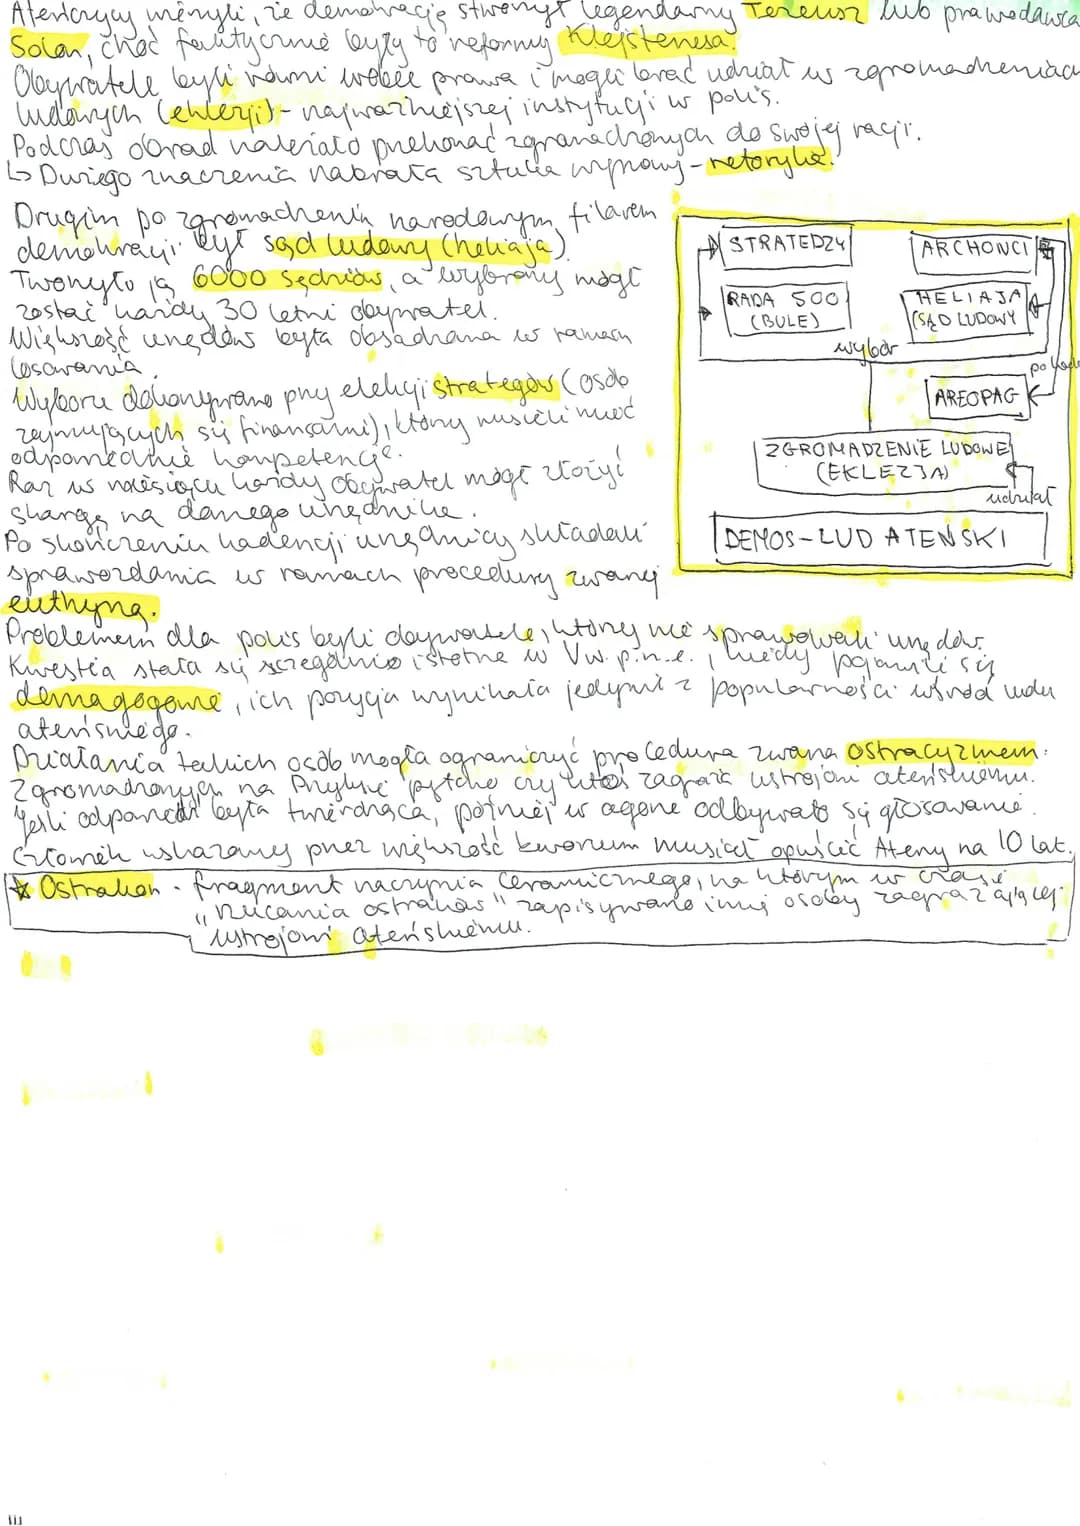 Ateńczycy wierzyli, że demokrację stworzył legendarny Tezeusz lub prawodawca
Solon, choć faktycznie były to reformy Klejstenesa.
Obywatele byli równi wobec prawa i mogli brać udział w zgromadzeniach
ludowych (eklezji) - najważniejszej instytucji w polis.
Podczas obrad należało przekonać zgromadzonych do swojej racji.
↳ Dużego znaczenia nabrała sztuka wymowy - retoryka.
Drugim po zgromadzeniu narodowym filarem
demokracji był sąd ludowy (heliaja).
Tworzyło ją 6000 sędziów, a wybrany mógł
zostać każdy 30 letni obywatel.
Większość urzędów była obsadzana w ramach
losowania.
Wyboru dokonywano przy elekcji strategów (osób
zajmujących się finansami), którzy musieli mieć
odpowiednie kompetencje.
Raz w miesiącu każdy obywatel mógł złożyć
skargę na danego urzędnika.
Po skończeniu kadencji urzędnicy składali
sprawozdania w ramach procedury zwanej
euthyną.
STRATEDZY
ARCHONCI
RADA 500
(BULE)
HELIAJA
(SĄD LUDOWY
wybór
po kade
AREOPAG
ZGROMADZENIE LUDOWE
(EKLEZJA)
udział
DEMOS - LUD ATEŃSKI
Problemem dla polis byli obywatele, którzy nie sprawowali urzędów.
Kwestia stała się szczególnie istotne w V w. p.n.e., kiedy pojawili się
demagogowie, ich pozycja wynikała jedynie z popularności wśród ludu
ateńskiego.
Działania takich osób mogła ograniczyć procedura zwana ostracyzmem:
Zgromadzonych na Pnyksie pytano czy ktoś zagraża ustrojowi ateńskiemu.
Jeśli odpowiedź była twierdząca, później w agorze odbywało się głosowanie.
Człowiek wskazany przez większość kworum musiał opuścić Ateny na 10 lat.
☆ Ostrakon - fragment naczynia ceramicznego, na którym w czasie
"rzucania ostraków" zapisywano imię osoby zagrażającej
ustrojowi ateńskiemu.